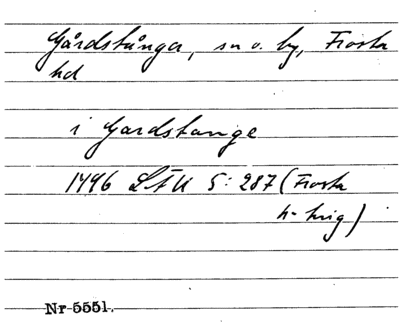 Gårdstånga, sn o. by, Frosta
hd
i Gardstange
1496 LFU 5:287 (Frosta
h-ting)
Nr 5551.